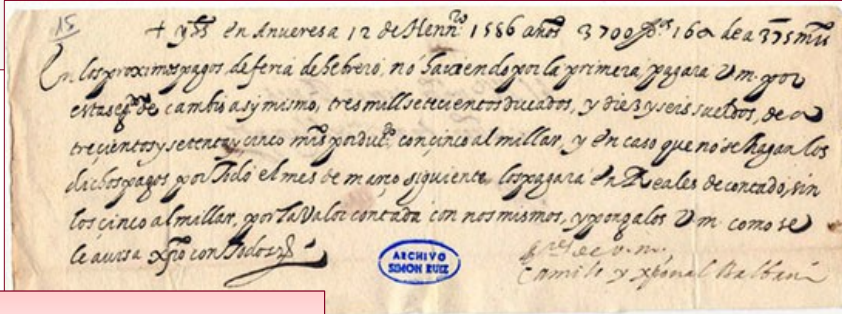 15
+ yhs en Anveresa 12 de Henn.ro 1586 años 3700 d.os 16 s de a 375 mrs
En los proximos pagos de feria de hebrero, no haviendo por la primera, pagara V.m. por
esta seg.da de cambio a sy mismo, tres mill setecientos ducados, y diez y seis sueldos, de a
trecientos y setenta y cinco mrs por duc.do con cinco al millar, y en caso que no se hagan los
dichos pagos por Todo el mes de março siguiente, los pagara en Reales de contado, sin
los cinco al millar, por la Valor contada con nosmismos, y pongalos V.m. como se
le avisa xpo con Todos
ARCHIVO
SIMON RUIZ
de v. m.
Camilo y xpoual Balbani